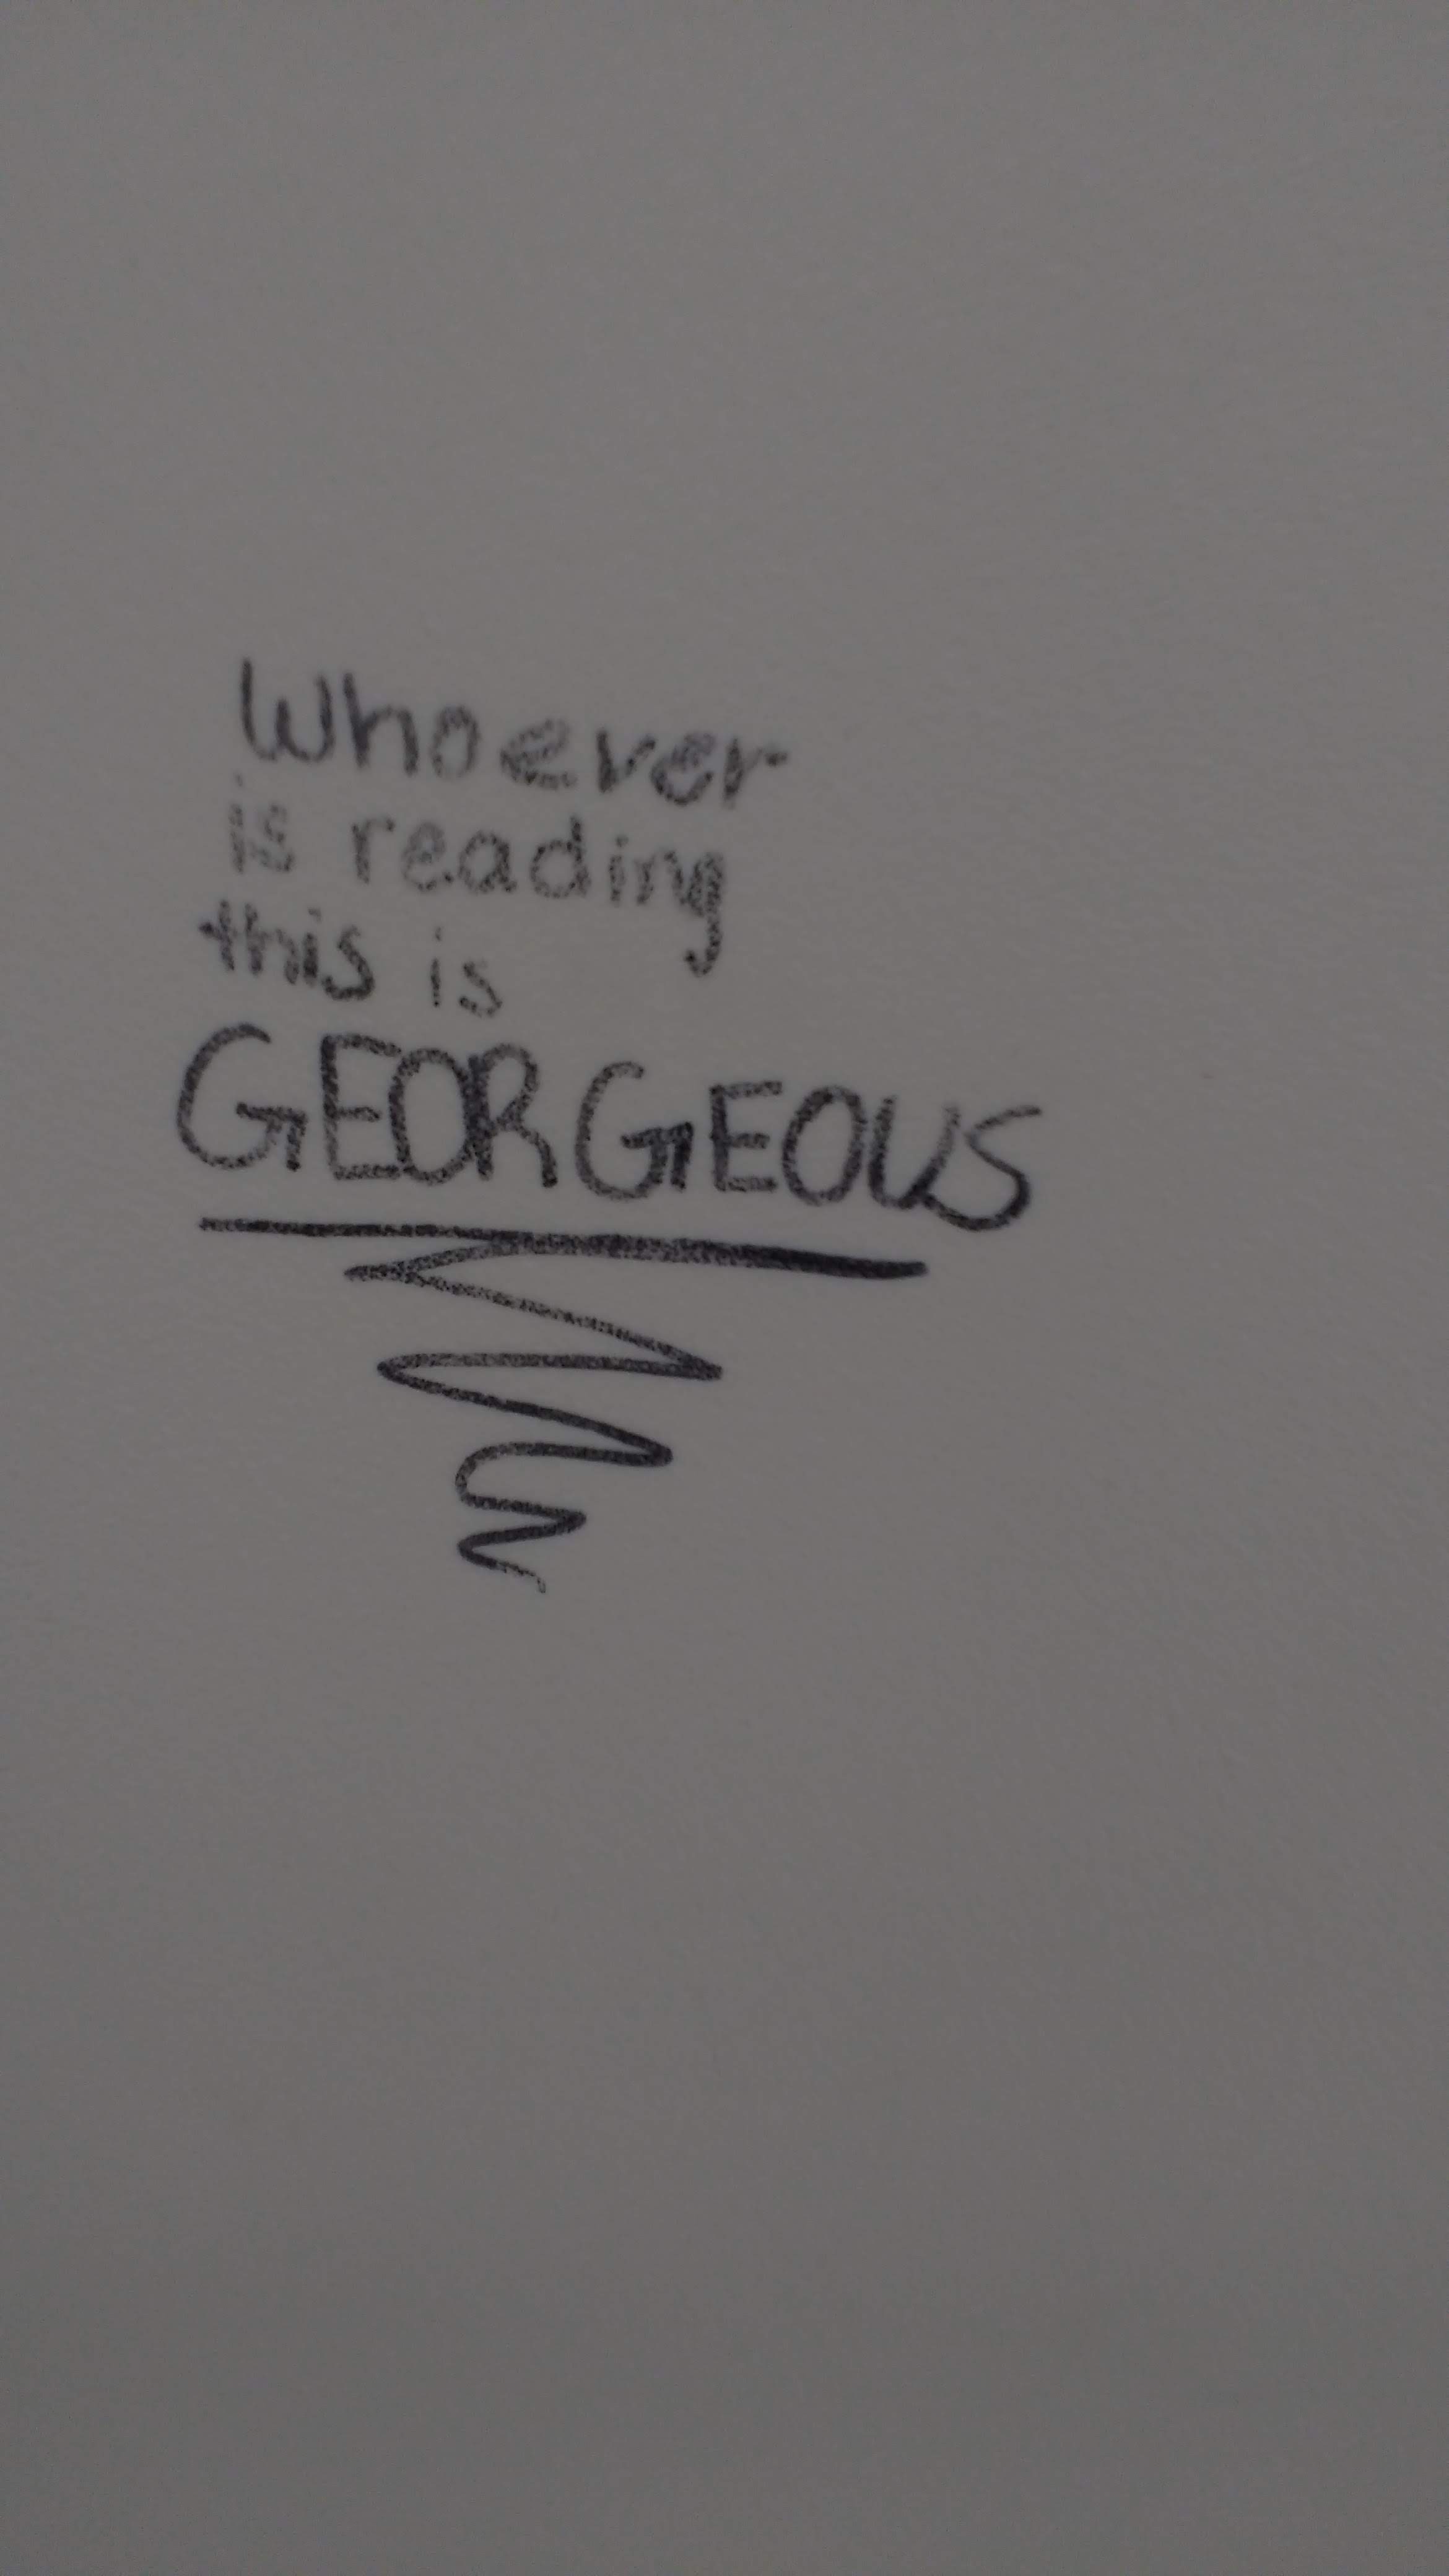 Whoever
is reading
this is
GEORGEOUS